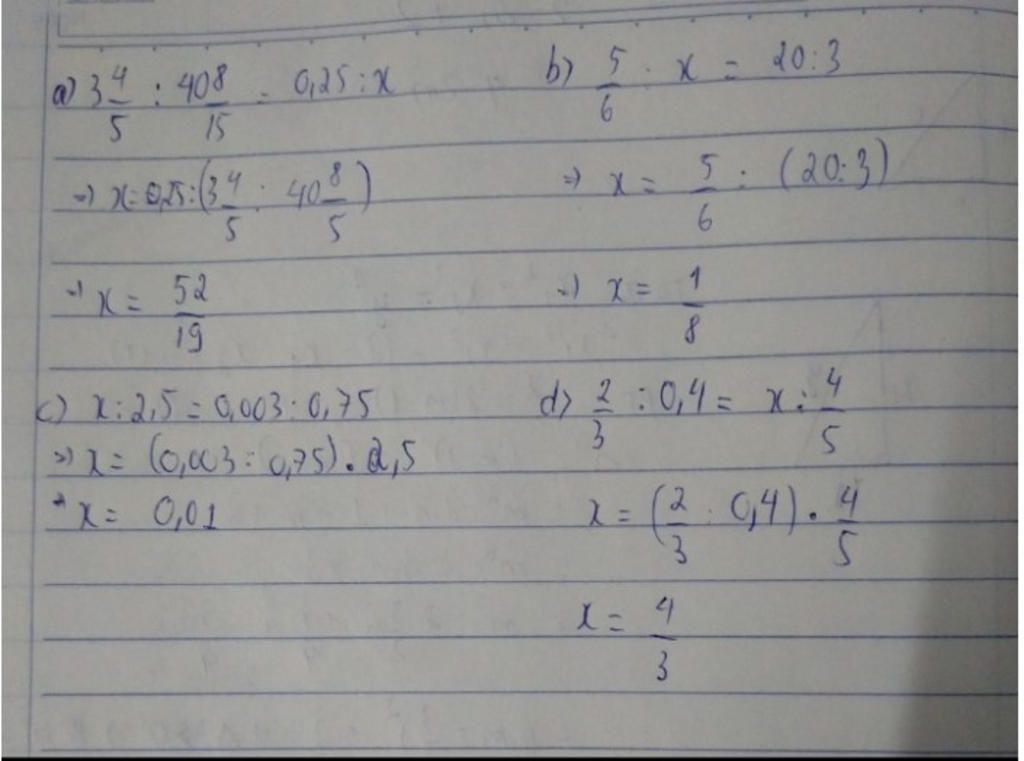 a) 3 4/5 : 40 8/15 = 0,25 : x
=> x = 0,25 : (3 4/5 : 40 8/5)
=> x = 52/19
b) 5/6 : x = 20 : 3
=> x = 5/6 : (20 : 3)
=> x = 1/8
c) x : 2,5 = 0,003 : 0,75
=> x = (0,003 : 0,75) . 2,5
=> x = 0,01
d) 2/3 : 0,4 = x : 4/5
x = (2/3 : 0,4) . 4/5
x = 4/3